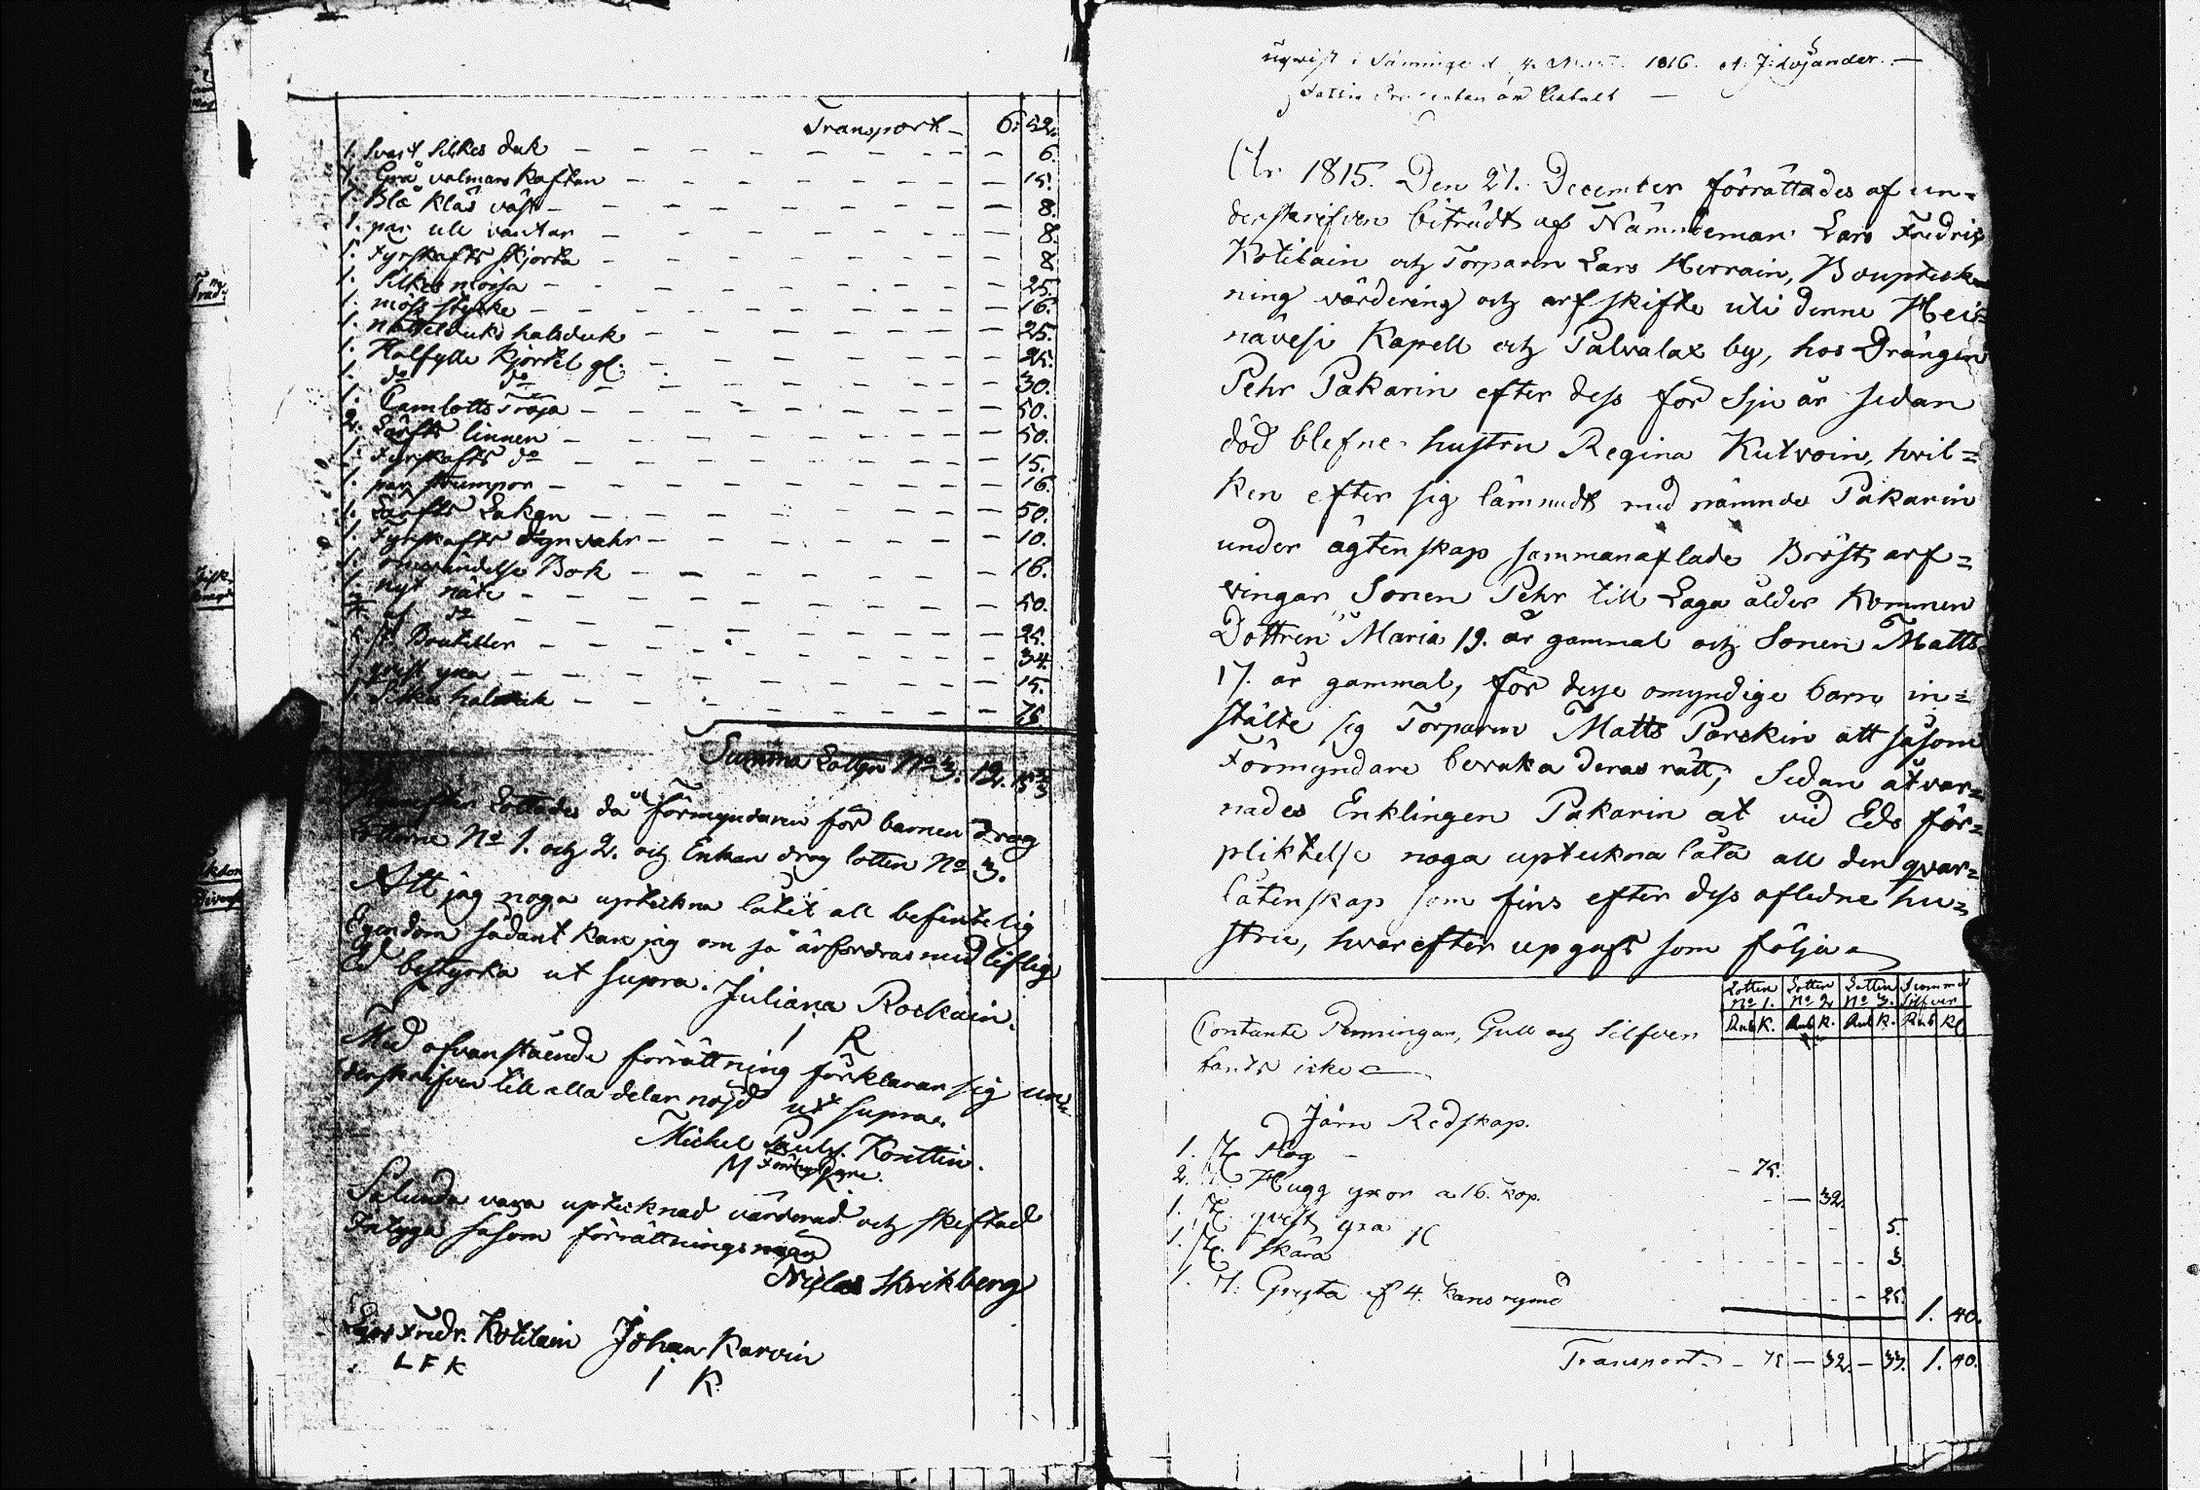 Transport 6. 52.
1. Svart Silkes duk 6.
1. Grå valmars Kaftan 15.
1. Blå Kläs väst 8.
1. par ull vantar 8.
1. Fyrskafts Skjorta 8
1. Silkes mössa 25.
1. möss stycke 16.
1. nättelduks halsduk 25.
1. Halfylle Kjortel gl. 25.
1. do do 30.
1. Camlotts Tröja 50.
2. Lärfts linnen 50.
1. Fyrskafts do 15.
1. par strumpor 16.
1. Lärfts Lakan 50.
1. Fyrskafts dynvahr 10.
1. omvändelse Bok 16.
1. nyt nät 50.
do 25.
Boutiller 34.
1. qvist yxa 15.
1. Silkes halsduk 75
Summa Lotten No 3. 12.
Härefter Lottades då Förmyndaren för barnen drog
Lotterne No 1. och 2. och Enkan drog lotten No 3.
Att jag noga uptekna låtit all befintelig
Egendom sådant kan jag om så ärfordras med liflig
Ed bestyrka ut supra. Juliana Roskain.
I R
Med ofvanstående förrättning förklarar sig un=
derskrifven till alla delar nöjd ut supra.
Michel Kosettin.
M
Sålunda vara uptecknad värderad och skiftad
Intyga såsom förrättningsmän
Niclas Skrikberg
Lars Fredr. Kotilain Johan Karvin
L F K I K
1816.
År 1815. Den 21. December förrättades af un=
derskrifven biträdt af Nämdeman Lars Fredrik
Kotilain och Torparen Lars Herrain, Bouptek
ning värdering och arfskifte uti denne Hei=
nävesi Kapell och Palvalax by, hos Drängen
Pehr Pakarin efter dess för Sju år sedan
död blefne hustru Regina Kutvoin, hvil=
ken efter sig lämnadt med nämnde Pakarin
under ägtenskap sammanaflade Bröst arf=
vingar Sonen Pehr till Laga ålder Kommen
Dottren Maria 19. år gammal och Sonen Matts
17. år gammal, för desse omyndige barn in=
stälte sig Torparen Matts Parskin att såsom
Förmyndare bevaka deras rätt, Sedan åtvar=
nades Enklingen Pakarin at vid Eds för=
pliktelse noga uptekna låta all den qvar=
låtenskap som fins efter dess aflidne hu=
stru, hvarefter upgafs som följer
Lotten No 1. Lotten No 2 Lotten No 3. Summa Silfver
Rub K. Rub K. Rub K. Rub K
Contante Penningar, Gull och Silfver
fants icke
Järn Redskap.
1. St. Plog 75.
2. St. Hugg yxor a 16. kop. 32.
1. St. qvist yxa 5.
1. St. Skära 3.
1. St. Gryta af 4. Kans rymd 25. 1. 40.
Transport 75 32. 33. 1. 40.